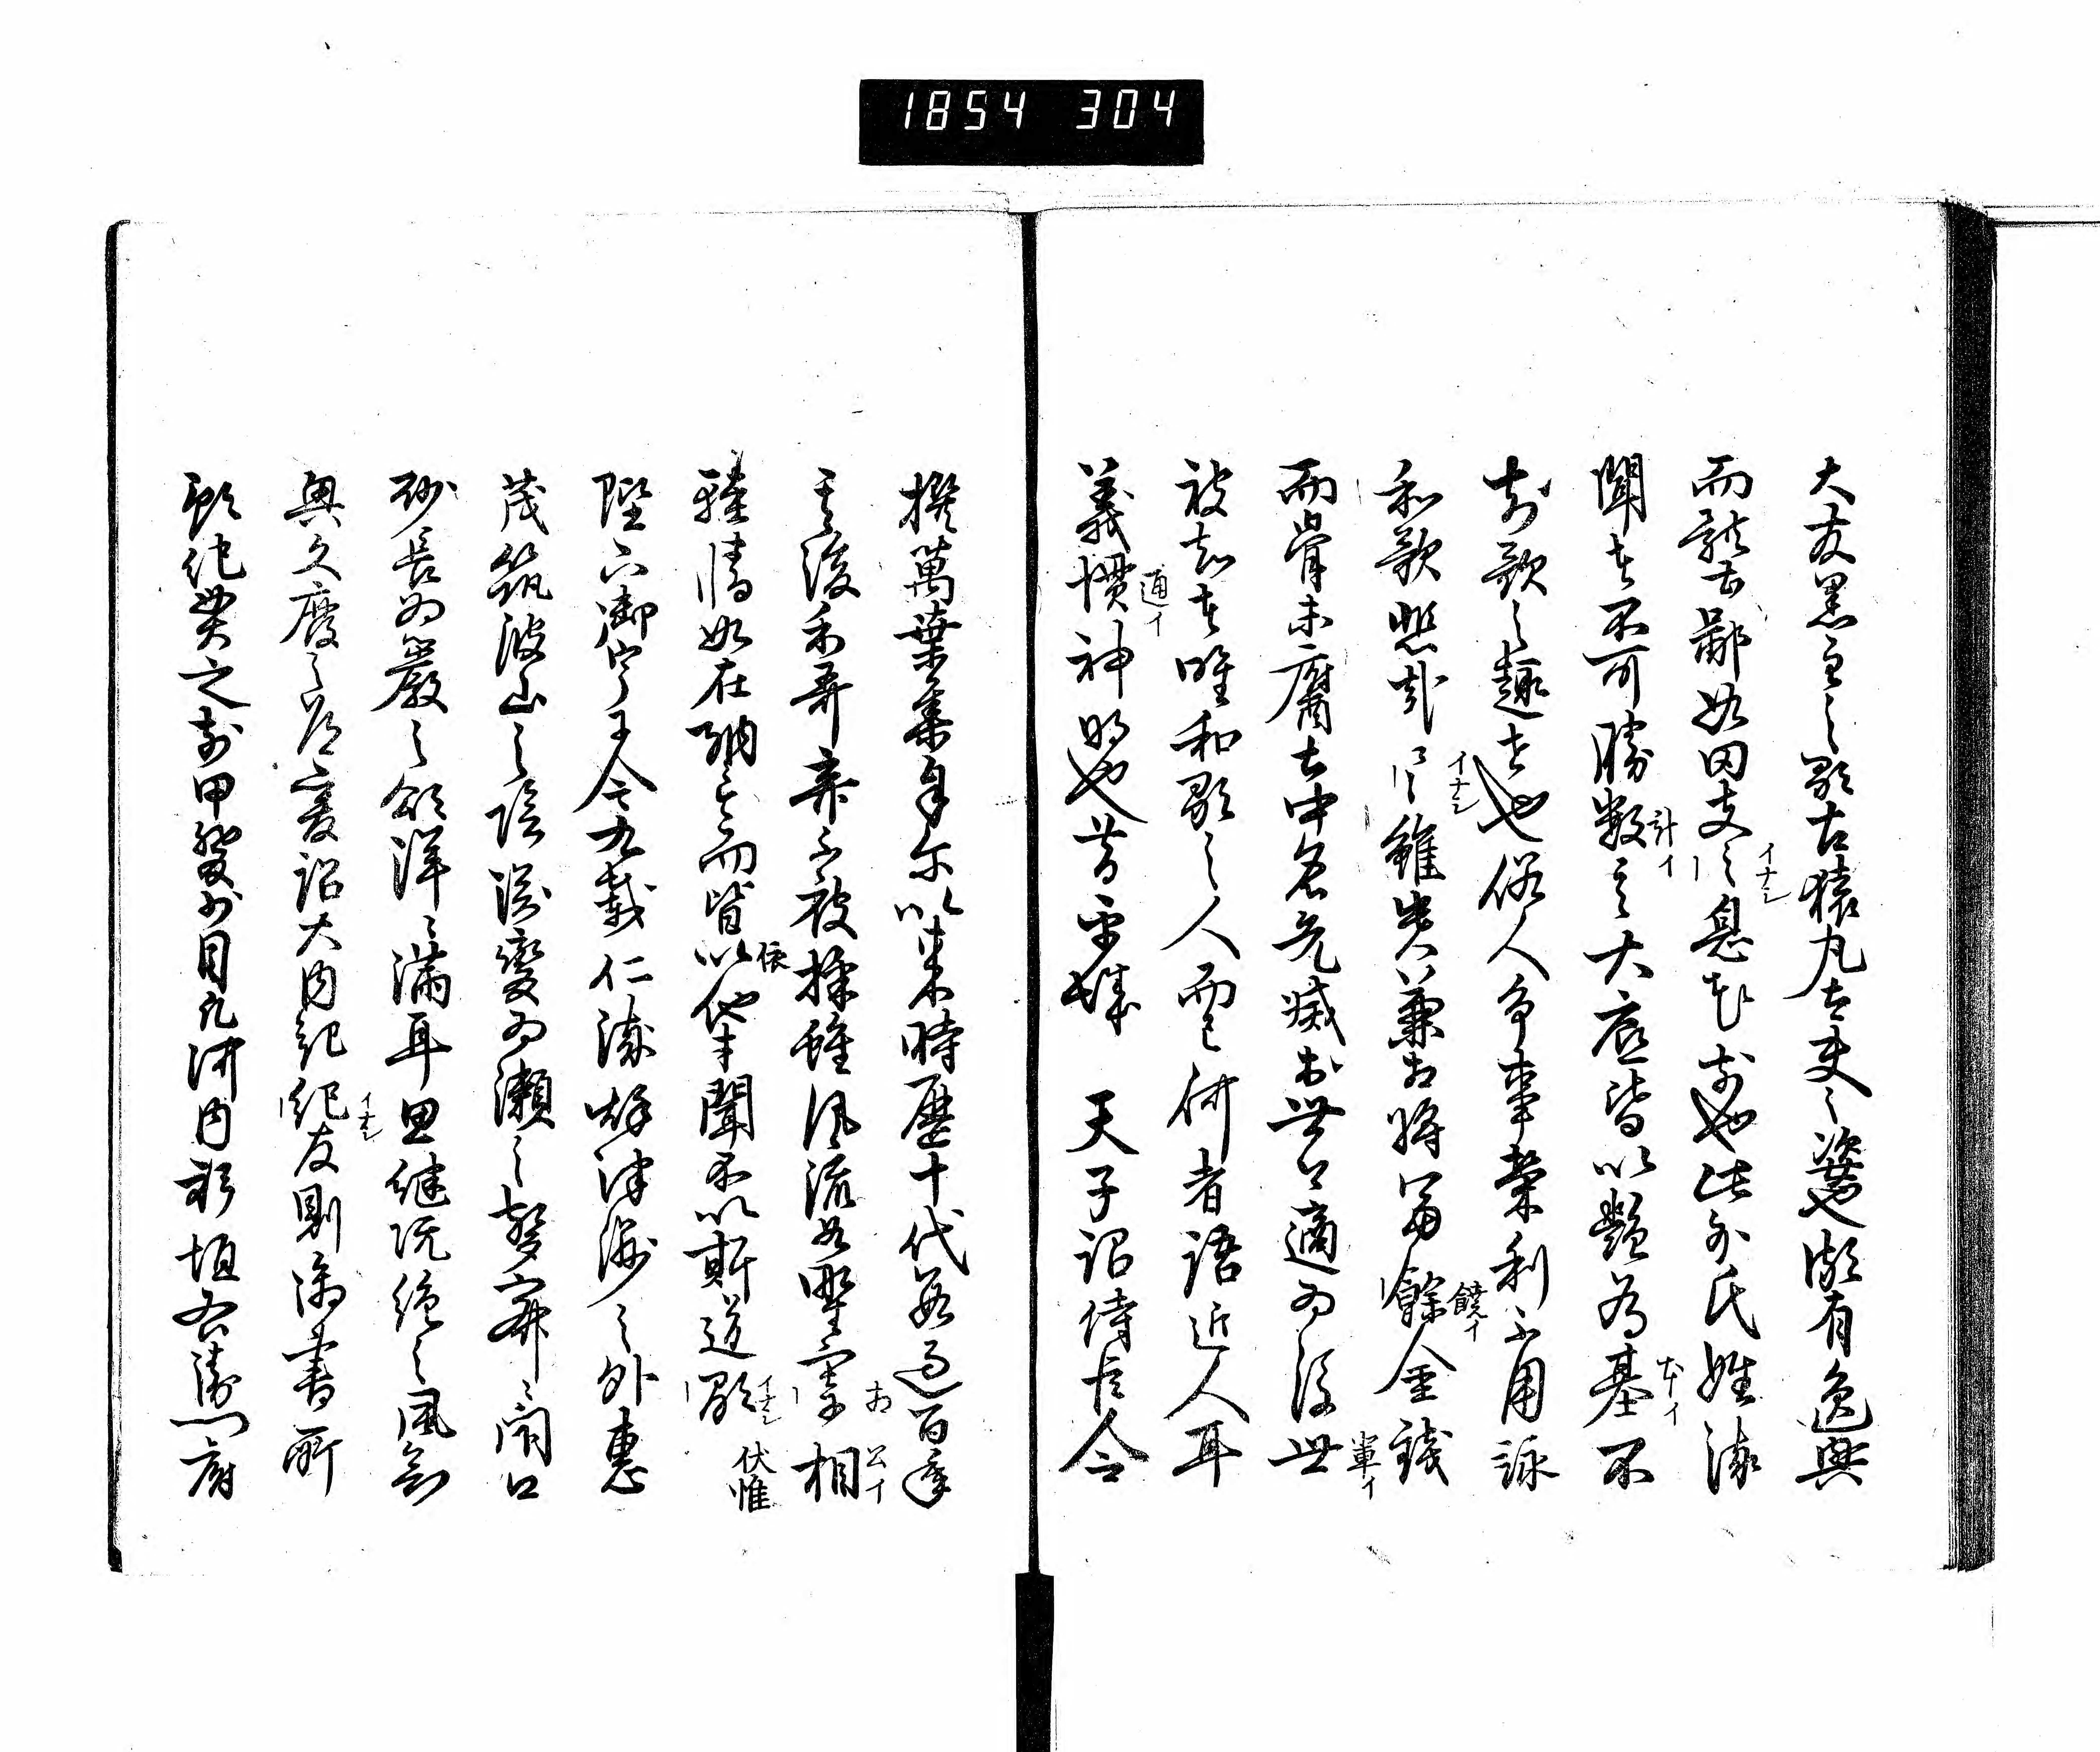 1854 304
大友黒主之歌古猿丸大夫之次也頗有逸興
而躰甚鄙如田夫之息花前也此外氏姓流
イナシ
聞者不可勝数之大底皆以艶為基不
計イ
本イ
知歌之趣者也俗人争事栄利不用詠
和歌悲哉々々雖貴兼相将富餘金銭
イナシ
饒イ
而骨未腐土中名先滅於世上適為後世
軍イ
被知者唯和歌之人而已何者語近人耳
義慣神明也昔平城 天子詔侍臣令
通イ
撰萬葉集自尓以来時歴十代数過百年
其後和哥弃不被採雖風流如野宰相
公イ
軽情如在納言而皆以他才聞不以斯道顕
依
イナシ
伏惟
陛下御宇于今九載仁流秋津洲之外恵
茂筑波山之陰渕変為瀬之聲寂々閇口
砂長為巌之頌洋々満耳思継既絶之風欲
興久廃之道爰詔大内記紀友則御書所
イナシ
預紀貫之前甲斐少目凡河内躬恒右衛門府